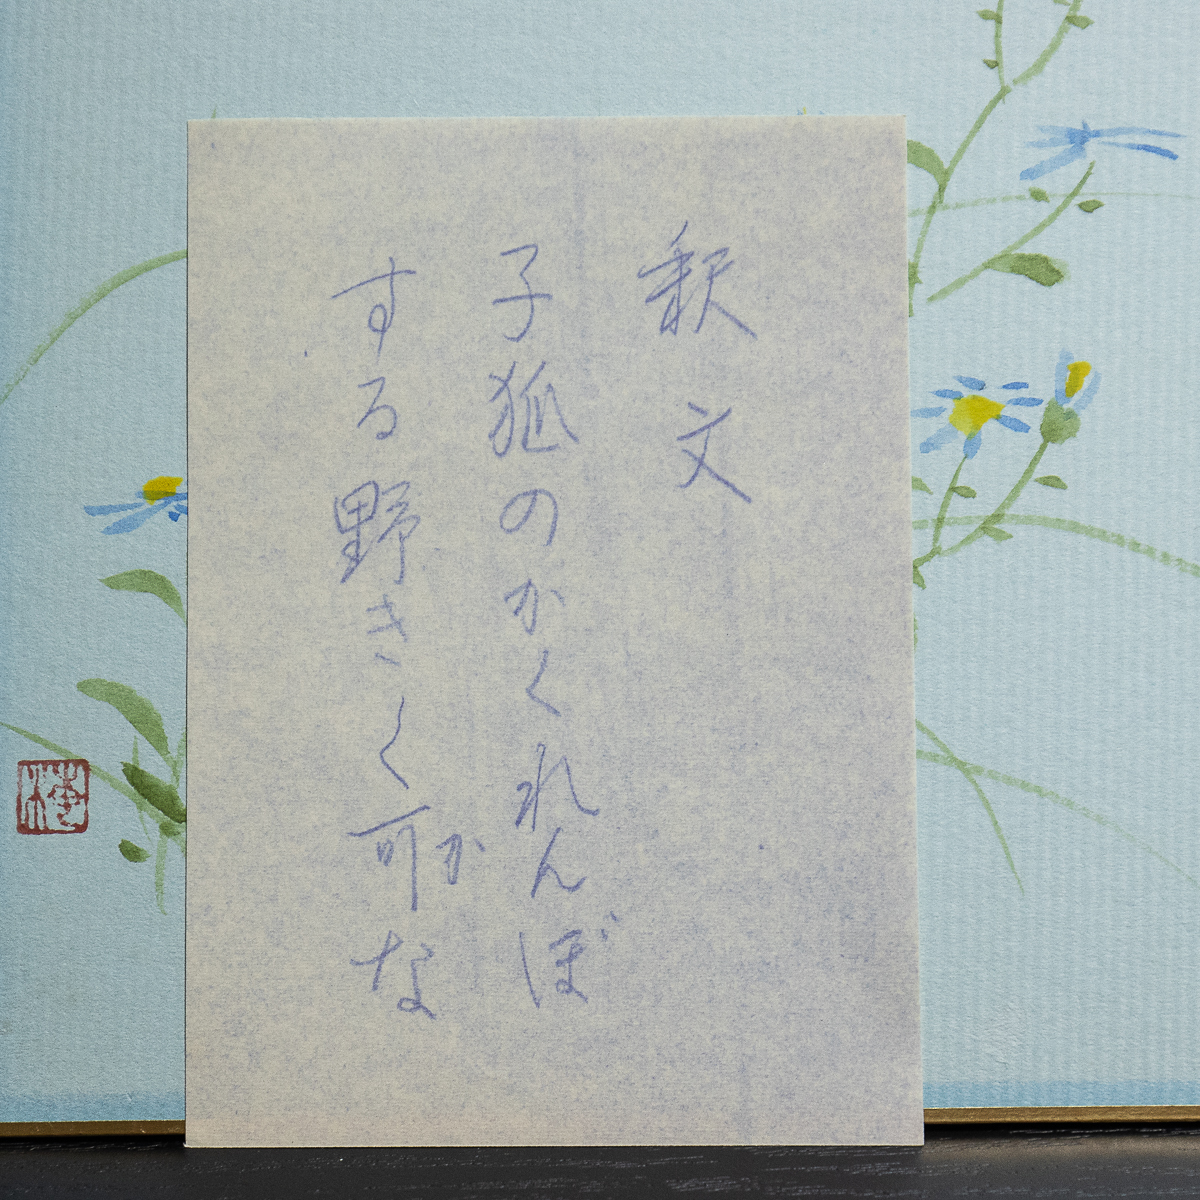 釈文
子狐のかくれんぼ
する野ぎく可な
か